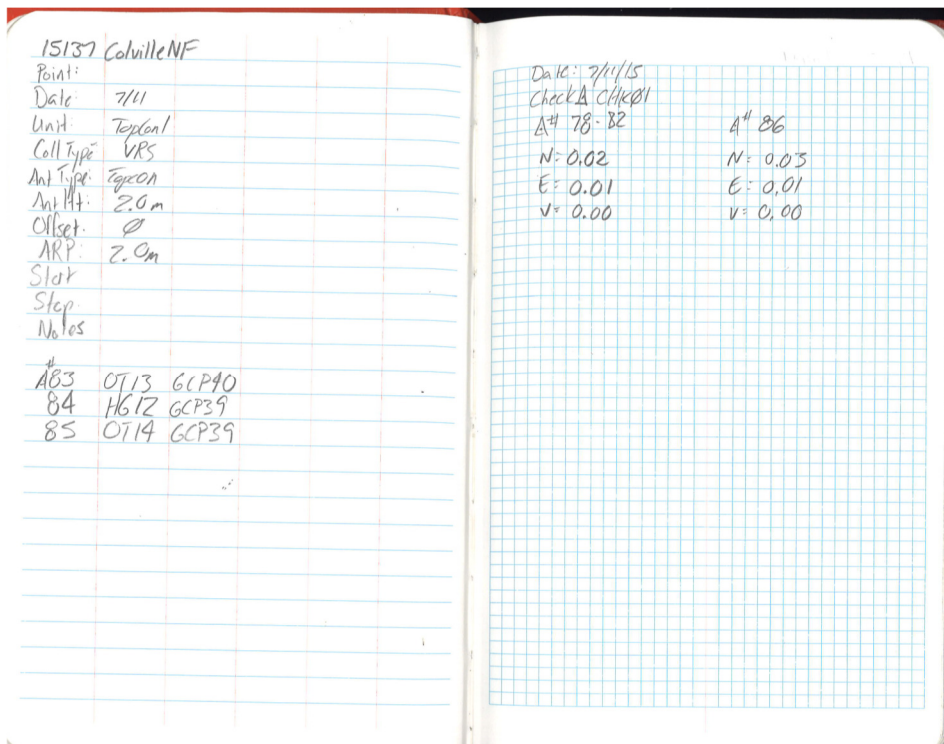 15137 Colville NF
Point:
Date: 7/11
Unit: TopCon1
Coll Type: VRS
Ant Type: Topcon
Ant Ht: 2.0m
Offset: Ø
ARP: 2.0m
Start
Stop
Notes
#
A83 OT13 GCP40
84 HG12 GCP39
85 OT14 GCP39
Date: 7/11/15
Check Δ CHKØ1
A# 78-82 A# 86
N: 0.02 N: 0.03
E: 0.01 E: 0.01
V: 0.00 V: 0.00